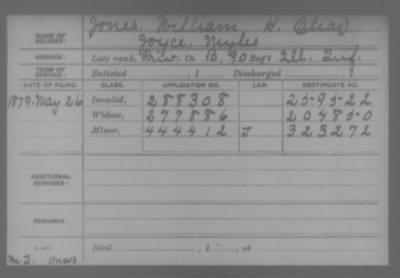 Jones, William H. (Alias)
NAME OF SOLDIER: Joyce, Myles
SERVICE: Late rank, Priv. Co. B, 90 Reg't Ill. Inf.
TERM OF SERVICE: Enlisted , 1 Discharged , 1
DATE OF FILING. CLASS. APPLICATION NO. LAW. CERTIFICATE NO.
1879-May 26 Invalid, 288308 25-95-22
Widow, 277886 20485-0
Minor, 444412 J 323272
ADDITIONAL SERVICES:
REMARKS:
Died , 1 , at